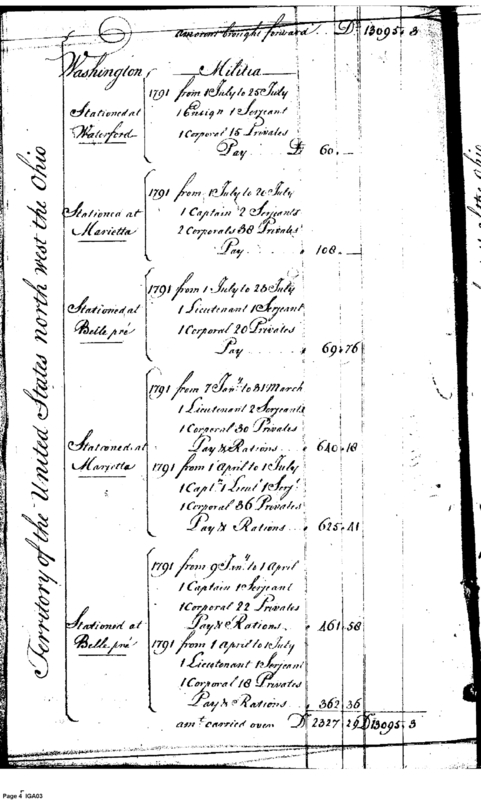 amount brought forward D° 13095. 3
Washington Militia
1791 from 1 July to 25 July
Stationed at 1 Ensign 1 Serjeant
Waterford 1 Corporal 15 Privates
Pay D 60. —
1791 from 1 July to 20 July
Stationed at 1 Captain 2 Serjeants
Marietta 2 Corporals 38 Privates
Pay " 108. —
1791 from 1 July to 23 July
Stationed at 1 Lieutenant 1 Serjeant
Belle pré 1 Corporal 20 Privates
Pay " 69.76
1791 from 7 Jany to 31 March
1 Lieutenant 2 Serjeants
1 Corporal 30 Privates
Stationed at Pay & Rations " 640.18
Maryetta 1791 from 1 April to 1 July
1 Capt.n 1 Lieut.t 1 Serj.t
1 Corporal 36 Privates
Pay & Rations " 625.41
1791 from 9 Jany to 1 April
1 Captain 1 Serjeant
1 Corporal 22 Privates
Stationed at Pay & Rations " 461.58
Belle pré 1791 from 1 April to 1 July
1 Lieutenant 1 Serjeant
1 Corporal 18 Privates
Pay & Rations " 362.36
amt carried over D° 2327.29 D° 13095. 3
Territory of the United States north west the Ohio
of the Ohio
Page 4 IGA03
5